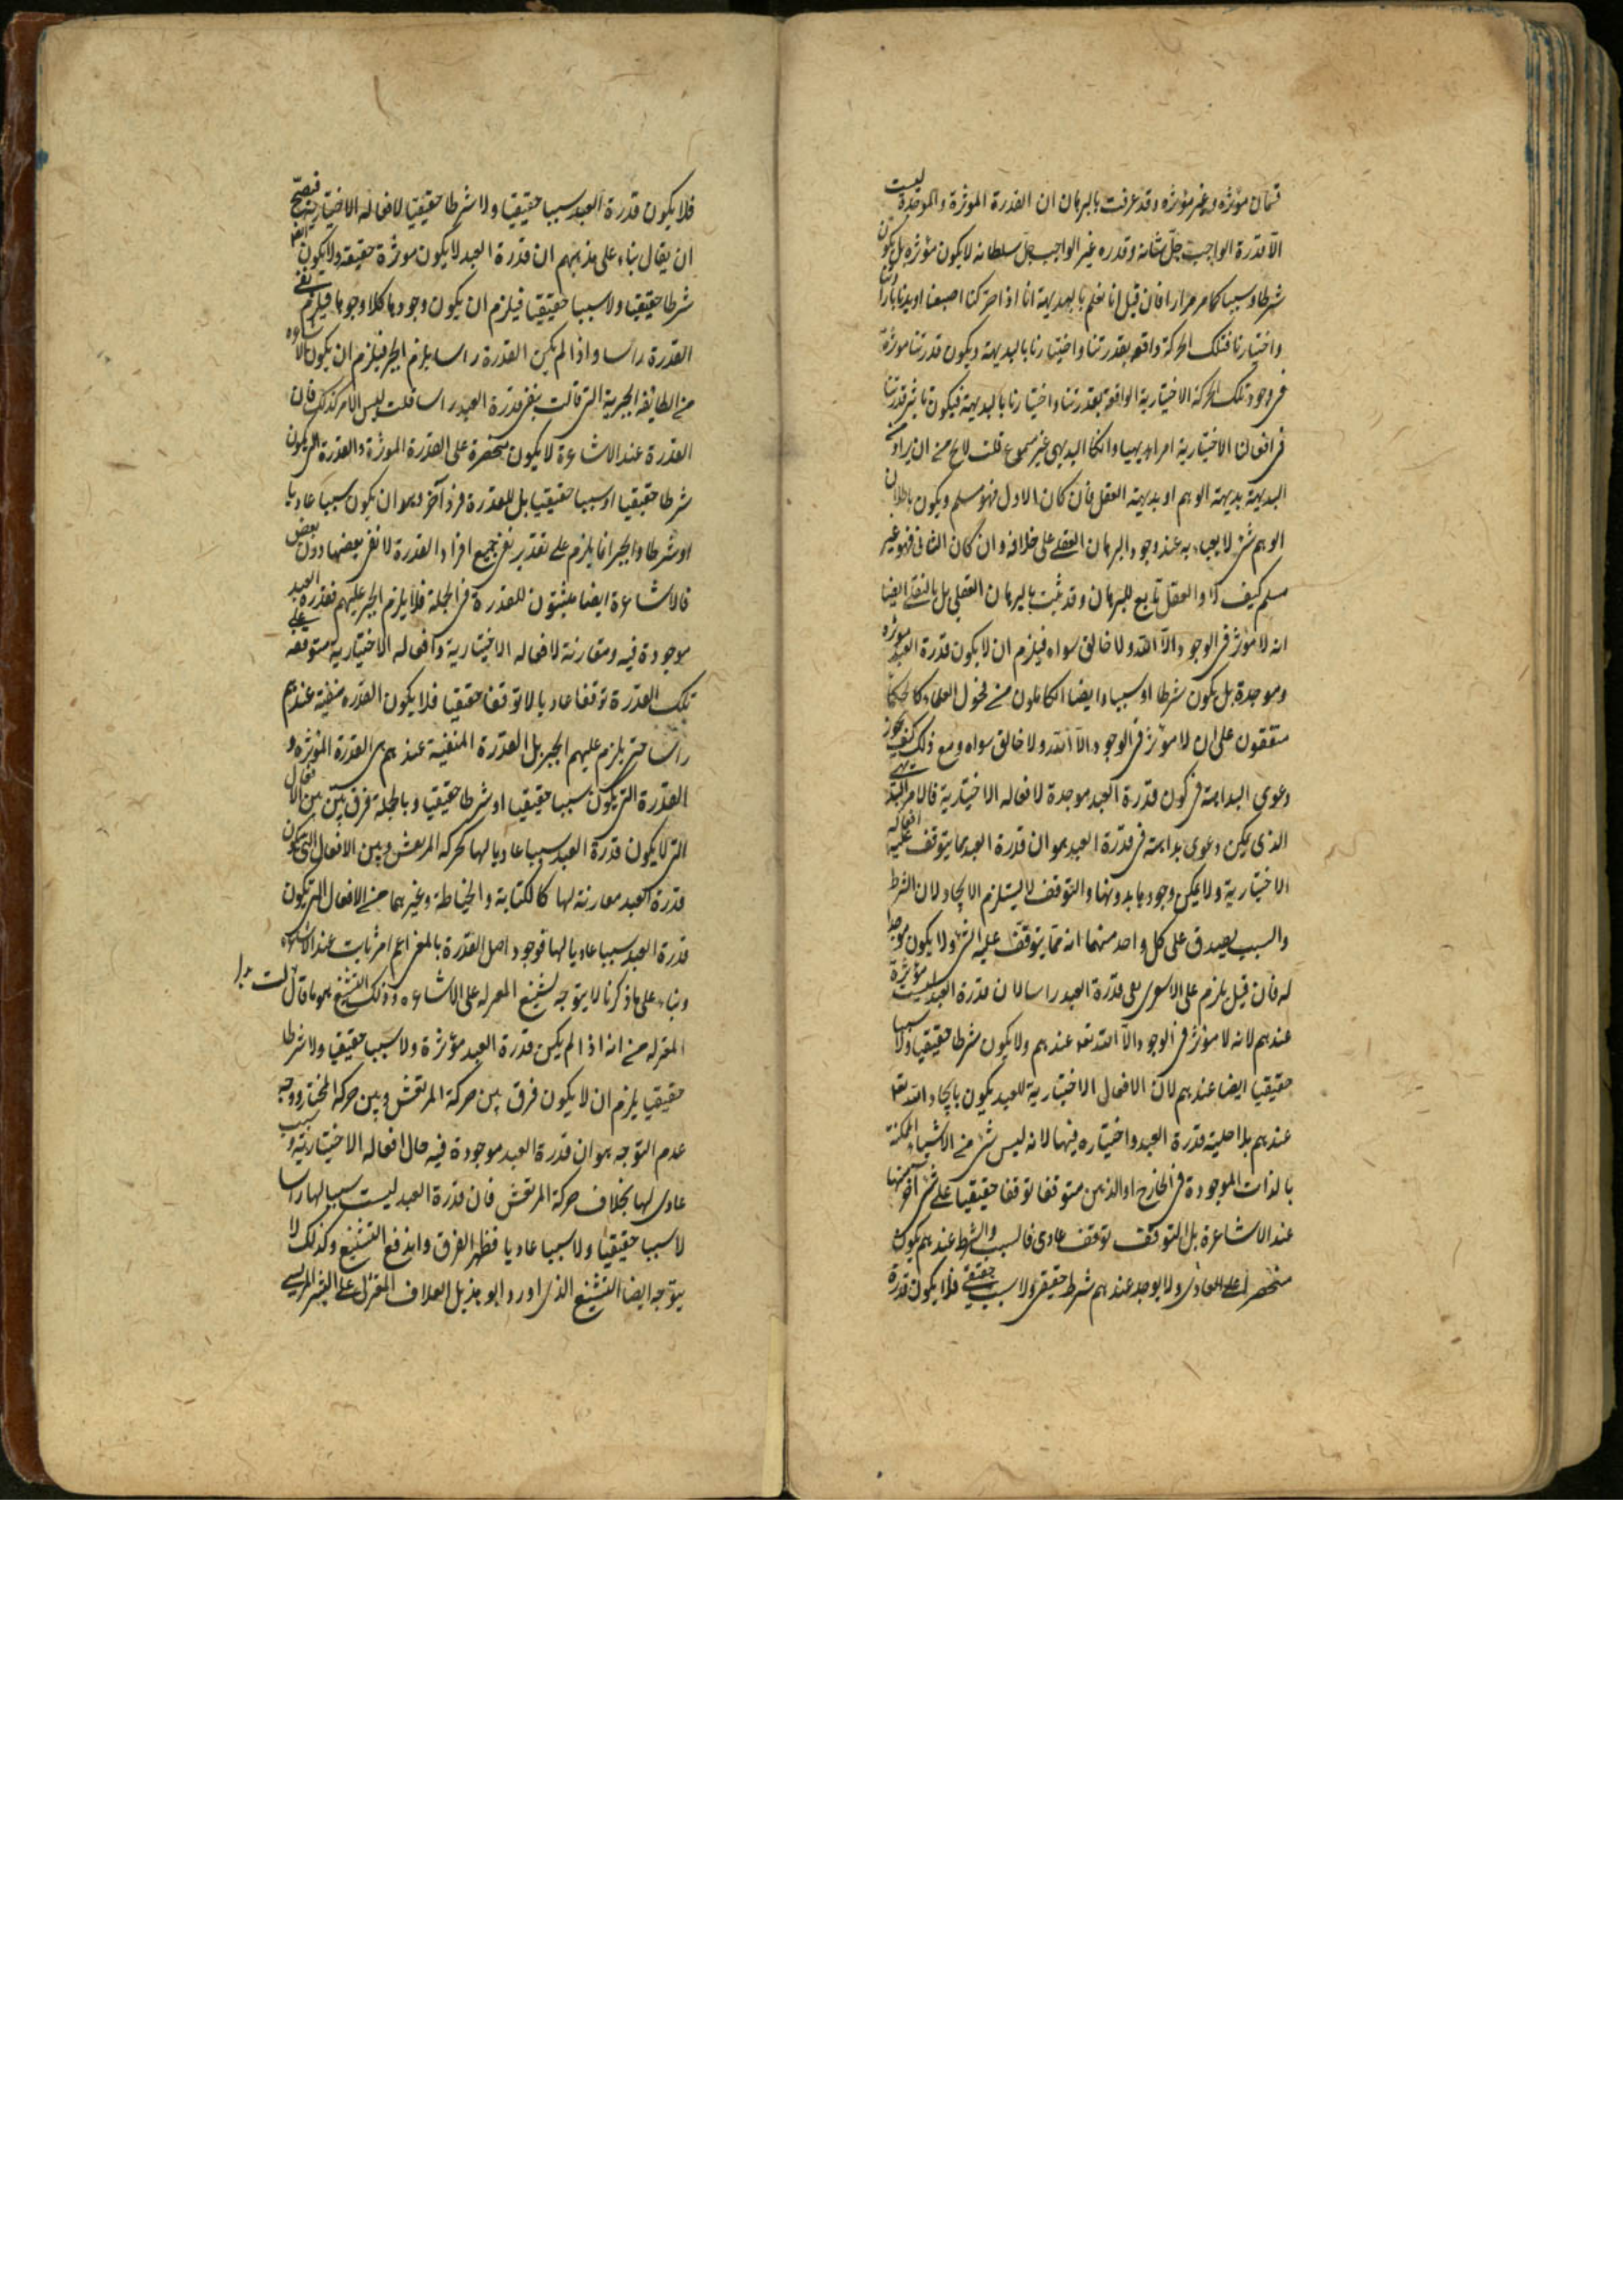 قسمان مؤثرة وغير مؤثرة وقد عرفت بالبرهان ان القدرة المؤثرة والموجدة ليست
الا قدرة الواجب جل شانه وقدره غير الواجب جل سلطانه لا يكون مؤثره بل يكون
شرطا وسببا كما مر مرارا فان قيل انا نعلم بالبديهية انا اذا حركنا اصبعنا او يدنا بارادتنا
واختيارنا فتلك الحركة واقعه بقدرتنا واختيارنا بالبديهية ويكون قدرتنا موثرة
في وجود تلك الحركة الاختيارية الواقعة بقدرتنا واختيارنا بالبديهية فيكون تاثير قدرتنا
في افعالنا الاختيارية امرا بديهيا وانكار البديهي غير مسموع قلت لا يخ من ان يراد
البديهية بديهية الوهم او بديهية العقل فان كان الاول فهو مسلم ويكون باطلا لان
الوهم شئ لا يعباء به عند وجود البرهان العقلي على خلافه وان كان الثاني فهو غير
مسلم كيف لا والعقل تابع للبرهان وقد ثبت بالبرهان العقلي بل بالنقلي ايضا
انه لا مؤثر في الوجود الا الله ولا خالق سواه فيلزم ان لا يكون قدرة العبد موثره
وموجدة بل يكون شرطا او سببا وايضا الكاملون من فحول العلماء كالحكما
متفقون على ان لا موثر في الوجود الا الله ولا خالق سواه ومع ذلك كيف يجوز
دعوى البداهة في كون قدرة العبد موجدة لافعاله الاختيارية فالامر البديهي
الذي يمكن دعوى بداهته في قدرة العبد هو ان قدرة العبد مما يتوقف عليه افعاله
الاختيارية ولا يمكن وجودها بدونها والتوقف لا يستلزم الايجاد لان الشرط
والسبب يصدق على كل واحد منهما انه مما يتوقف عليه الشئ ولا يكون موجدا
له فان قيل يلزم على الاشعرى نفى قدرة العبد راسا لان قدرة العبد ليست مؤثرة
عندهم لانه لا موثر في الوجود الا الله تعه عندهم ولا يكون شرطا حقيقيا ولا سببا
حقيقيا ايضا عندهم لان الافعال الاختيارية للعبد يكون بايجاد الله تعه
عندهم بلا اصلية قدرة العبد واختياره فيها لانه ليس شئ من الاشياء الممكنة
بالذات الموجودة في الخارج او الذهن متوقفا توقفا حقيقيا على شئ آخر منها
عند الاشاعرة بل التوقف توقف عادى فالسبب والشرط عندهم يكون
منحصرا على العادى ولا يوجد عندهم شرط حقيقى ولا سبب حقيقي فلا يكون قدرة
فلا يكون قدرة العبد سببا حقيقيا ولا شرطا حقيقيا لافعاله الاختيارية فيصح
ان يقال بناء على مذهبهم ان قدرة العبد لا يكون موثرة حقيقه ولا يكون ايضا
شرطا حقيقيا ولا سببا حقيقيا فيلزم ان يكون وجودها كلا وجودها فيلزم نفي
القدرة راسا واذا لم يكن القدرة راسا يلزم الجبر فيلزم ان يكون الاشاعره
من الطايفة الجبرية التي قالت بنفى قدرة العبد راسا قلت ليس الامر كذلك فان
القدرة عند الاشاعرة لا يكون منحصرة على القدرة الموثرة والقدرة التي يكون
شرطا حقيقيا او سببا حقيقيا بل للقدرة فرد آخر وهو ان يكون سببا عاديا
او شرطا والجبر انما يلزم على تقدير نفى جميع افراد القدرة لا نفى بعضها دون بعض
فالاشاعرة ايضا مثبتون للقدرة في الجملة فلا يلزم الجبر عليهم فقدرة العبد
موجودة فيه ومقارنة لافعاله الاختيارية وافعاله الاختيارية متوقفه على
تلك القدرة توقفا عاديا لا توقفا حقيقيا فلا يكون القدره منفية عندهم
راسا حتى يلزم عليهم الجبر بل القدرة المنفية عندهم هى القدرة المؤثره و
القدرة التي يكون سببا حقيقيا او شرطا حقيقيا وبالجملة فرق بين بين الافعال
التي لا يكون قدرة العبد سببا عاديا لها كحركه المرتعش وبين الافعال التي يكون
قدرة العبد مقارنة لها كالكتابة والخياطة وغيرهما من الافعال التي يكون
قدرة العبد سببا عاديا لها فوجود اصل القدرة بالمعنى الاعم امر ثابت عند الاشاعره
وبناء على ما ذكرنا لا يتوجه تشنيع المعتزله على الاشاعره وذلك التشنيع هو ما قالت
المعتزله من انه اذا لم يكن قدرة العبد مؤثرة ولا سببا حقيقيا ولا شرطا
حقيقيا يلزم ان لا يكون فرق بين حركة المرتعش وبين حركة المختار ووجه
عدم التوجه هو ان قدرة العبد موجودة فيه حال افعاله الاختيارية وسبب
عادى لها بخلاف حركة المرتعش فان قدرة العبد ليست سببا لها راسا
لا سببا حقيقيا ولا سببا عاديا فظهر الفرق واندفع التشنيع وكذلك لا
يتوجه ايضا التشنيع الذى اورد ابو هذيل العلاف المعتزلى على البشر المريسي